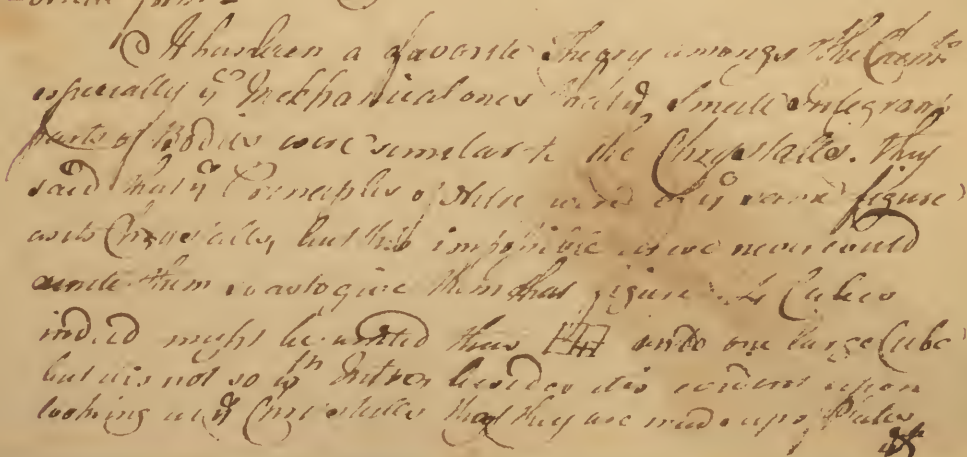 It has been a favorite Theory amongst the Chymts
especially ye Mechanical ones that ye Smallest Integrant
parts of Bodies were similar to the Chrystalls. They
said that ye Principles of Nitre were of ye same figure
as its Chrystalls, but this is impossible as we never could
unite them so as to give them that figure. 4 Cubes
indeed might be united thus into one large Cube
but it is not so wth Nitre besides it is evident upon
looking at ye Chrystalls that they are made up of Plates